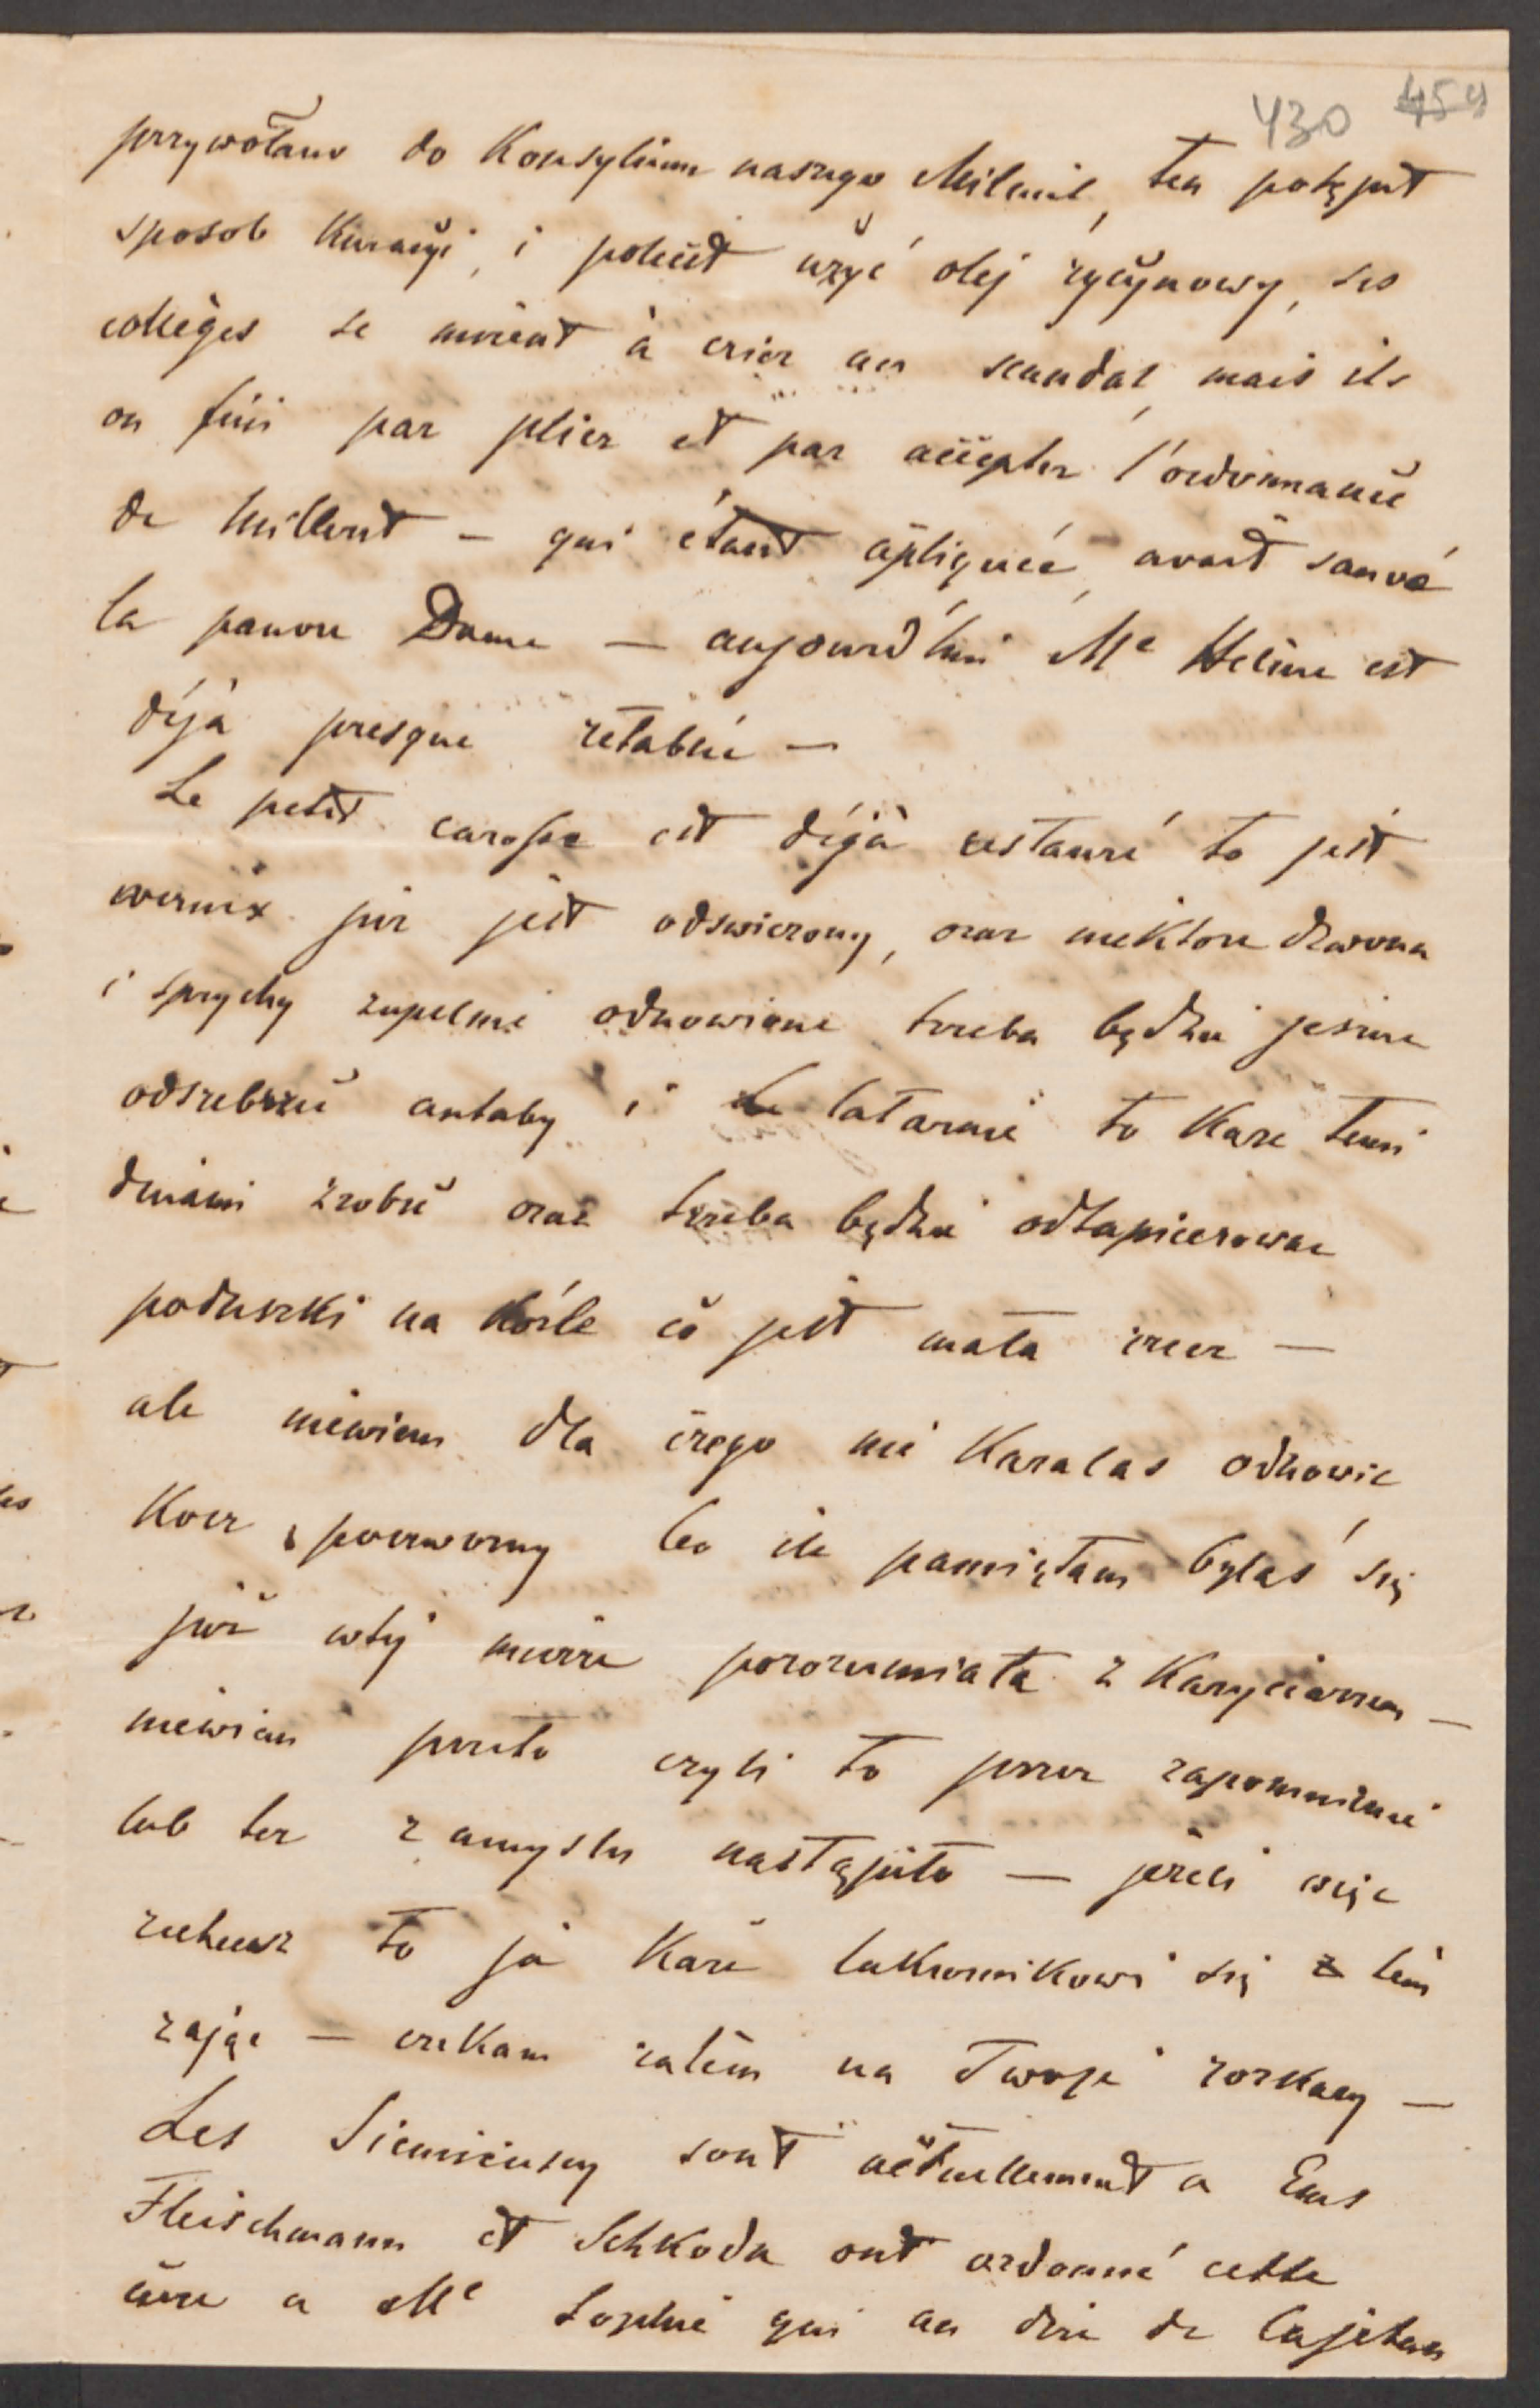 430 459
przywołano do Konsylium naszego Milleret, ten potępił
sposób Kuracyi, i polecił użyć olej rycynowy, ses
collèges se mirent à crier au scandal, mais ils
on fini par plier et par accepter l'ordonnance
de Milleret – qui étant apliquée, avait sauvé
la pauvre Dame — aujourd'hui Me Helène est
déjà presque rétablié —
Le petit carosse est déjà restauré to jest
wernix już jest odswierzony, oraz niektore dzwona
i sprychy zupelnie odnowione treba będzie jeszcze
odsrebrzić antaby i latarnie to Karze temi
dniami zrobić oraz trzeba będzie odtapicerować
poduszki na koźle co jest mała rzecz —
ale niewiem dla czego nie Kazalas odnowić
Kocz poczworny bo ile pamiętam byłaś się
już wtej mierze porozumiała z Karyciarzem —
niewiem przeto czyli to przez zapomnienie
lub tez z amysłu nastąpiło — jeżeli więc
zechcesz to ja Każe lakiernikowi się tem
zająć — czekam zatém na Twoje rozkazy —
Les Siemieńscy sont actuellement a Ems
Fleischmann et Schkoda ont ordonné cette
cure a Me Sophie qui au dire de Cajetan